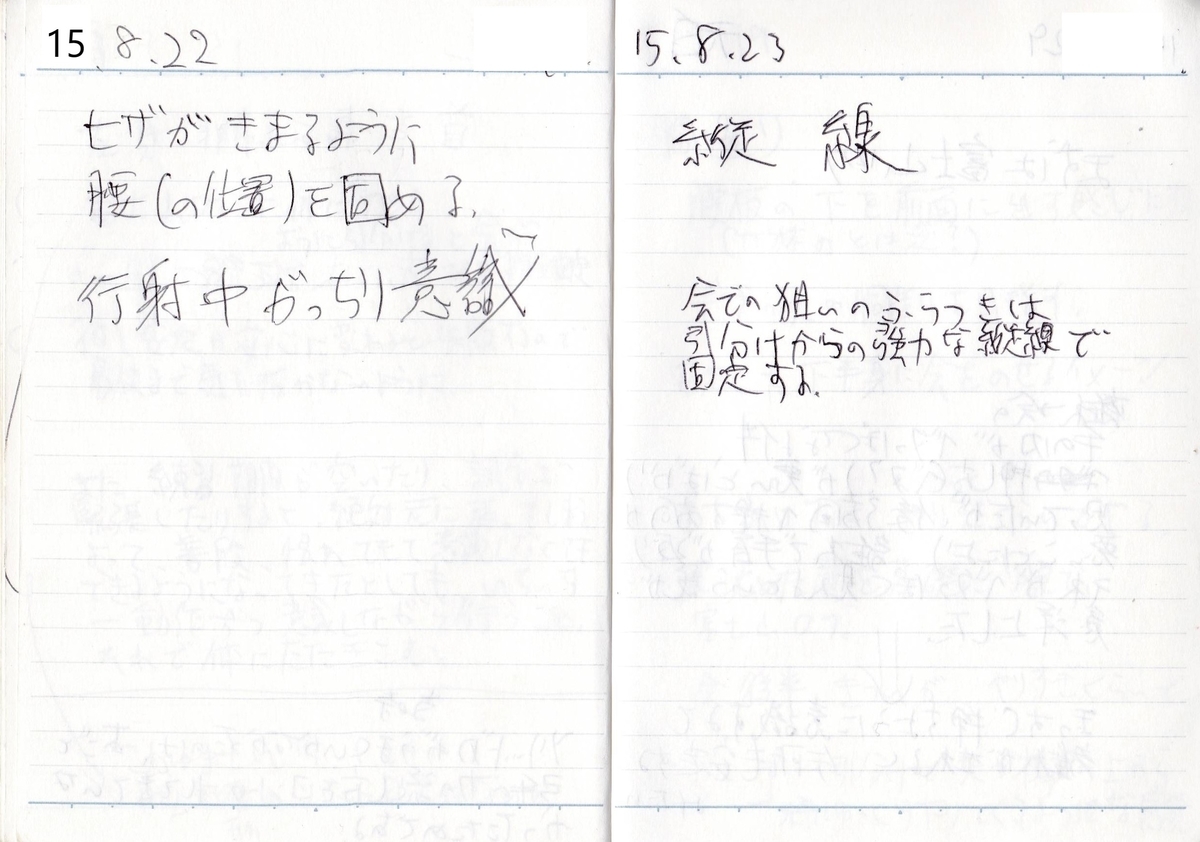 15.8.22
ヒザがきまるように
腰(の位置)を固める.
行射中がっちり意識
15.8.23
縦 線
会での狙いのふらつきは
引分けからの強力な縦線で
固定する.